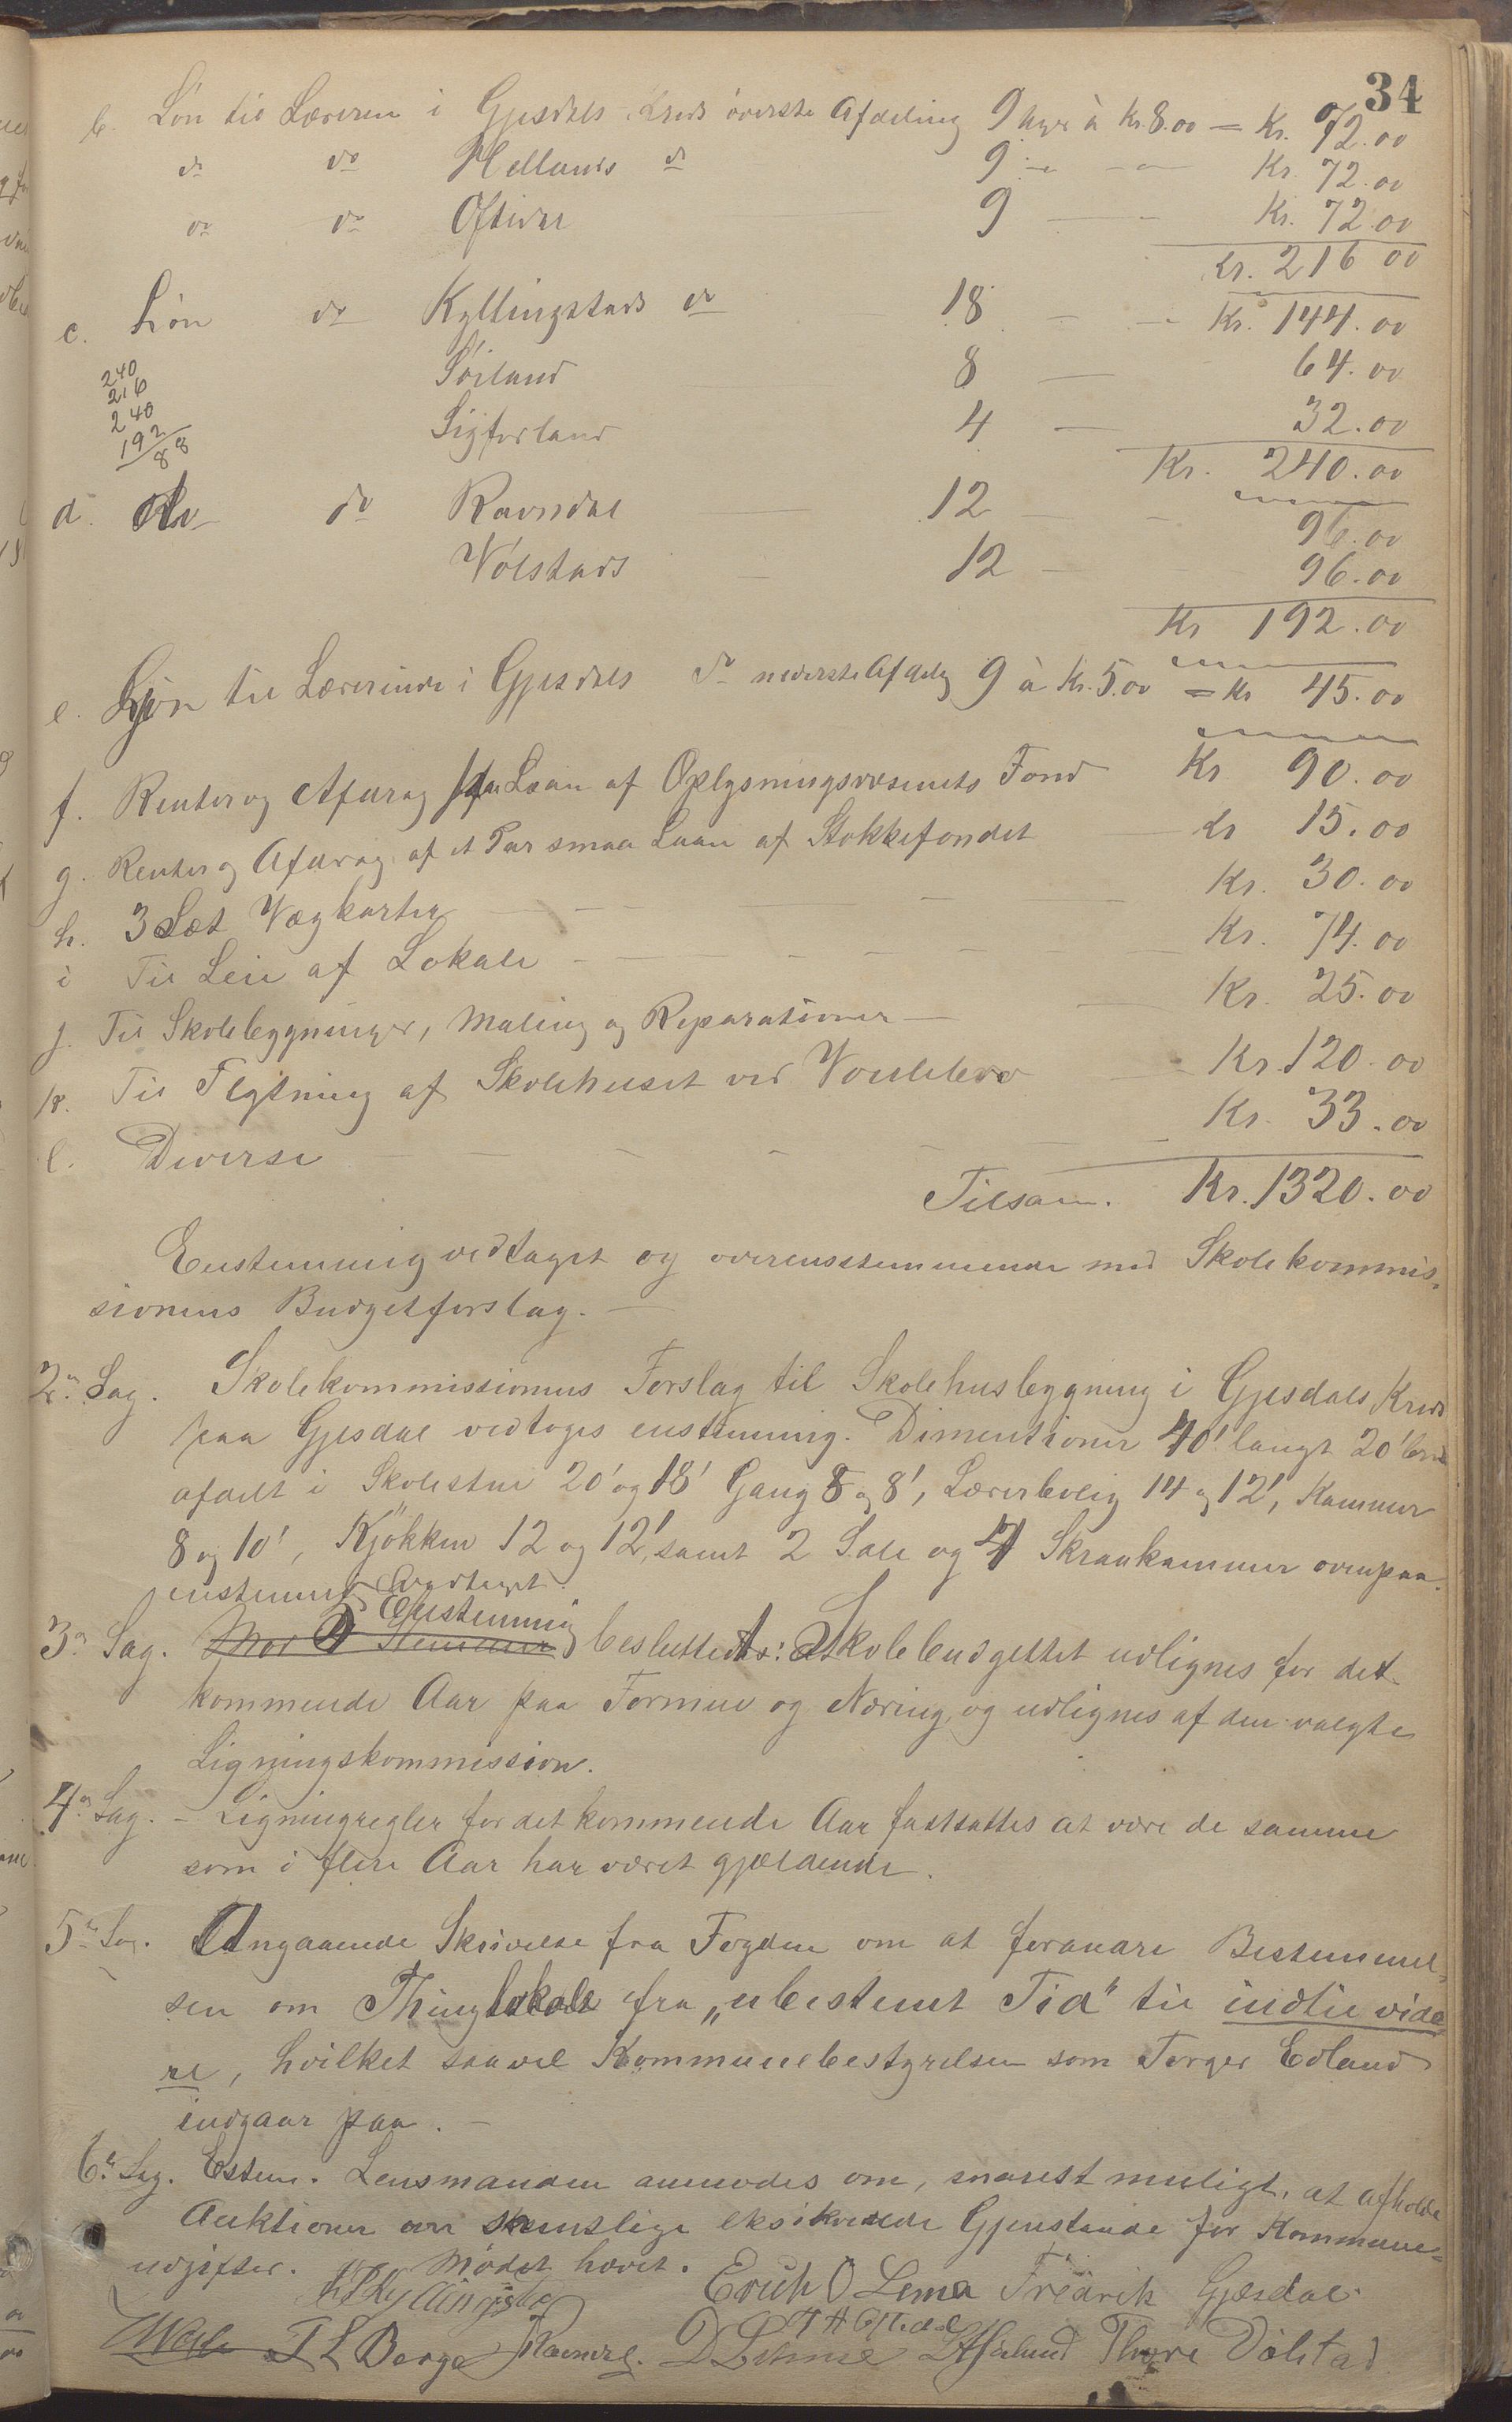 34
b. Løn til Læreren i Gjesdals Kreds øverste Afdeling 9 Uger à Kr. 8.00 = Kr. 72.00
do do Hellands do 9 - - Kr. 72.00
do do Oftedal 9 - - Kr. 72.00
Kr. 216.00
c. Løn do Kyllingstads do 18 - - Kr. 144.00
240
216
240
192
88
Søiland 8 - 64.00
Sigforland 4 - 32.00
Kr. 240.00
d. do Ravndal 12 - - 96.00
Vølstads - 12 - 96.00
Kr 192.00
e. Løn til Lærerinde i Gjesdals do nederste Afdelg 9 à Kr. 5.00 = Kr 45.00
f. Renter og Afdrag paa Laan af Oplysningsvæsenets Fond Kr 90.00
g. Renter og Afdrag af et Par smaa Laan af Stokkefondet Kr 15.00
h. 3 Sæt Vægkarter - - - Kr. 30.00
i Til Leie af Lokale - - - Kr. 74.00
j. Til Skolebygninger, Maling og Reparationer - Kr. 25.00
k. Til Flytning af Skolehuset ved Kr. 120.00
l. Diverse - - - Kr. 33.00
Tilsam. Kr. 1320.00
Enstemmig vedtaget og overensstemmende med Skolekommis-
sionens Budgetforslag. -
2n Sag. Skolekommissionens Forslag til Skolehusbygning i Gjesdals Kreds
paa Gjesdal vedtoges enstemmig. Dimentioner 40' langt 20' bred
afdelt i Skolestue 20' og 18' Gang 8 og 8', Lærerbolig 14 og 12', Kammer
8 og 10', Kjøkken 12 og 12', samt 2 Sale og 4 Skraakammer ovenpaa.
enstemmig vedtaget.
3n Sag. Mod Stemmer Enstemmig besluttedes: Skolebudgettet udlignes for det
kommende Aar paa Formue og Næring, og udlignes af den valgte
Ligningskommission.
4n Sag. - Ligningregler for det kommende Aar fastsattes at være de samme
som i flere Aar har været gjældende.
5n Sag. Angaaende Skrivelse fra Fogden om at forandre Bestemmel-
sen om Thinglokale fra „ubestemt Tid" til indtil vide-
re, hvilket saavel Kommunebestyrelsen som Torger Edland
indgaar paa. -
6n Sag. Estem. Lensmanden anmodes om, snarest muligt, at afholde
Auktioner over samtlige eksikverede Gjenstande for Kommune-
udgifter. Mødet hævet.
Kyllingstad Erich O Lema Fredrik Gjesdal
T H Oftedal
T L Berge Ravndal. D Limme Søilund Thore Vølstad